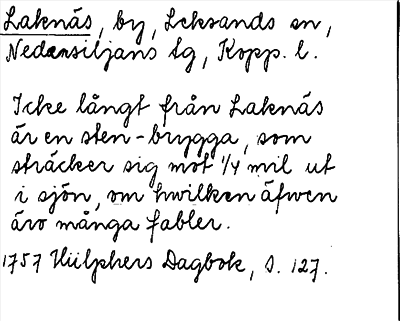 Laknäs, by, Leksands sn,
Nedansiljans tg, Kopp. l.
Icke långt från Laknäs
är en sten-brygga, som
sträcker sig mot 1/4 mil ut
i sjön, om hwilken äfwen
äro många fabler.
1757 Hülphers Dagbok, s. 127.